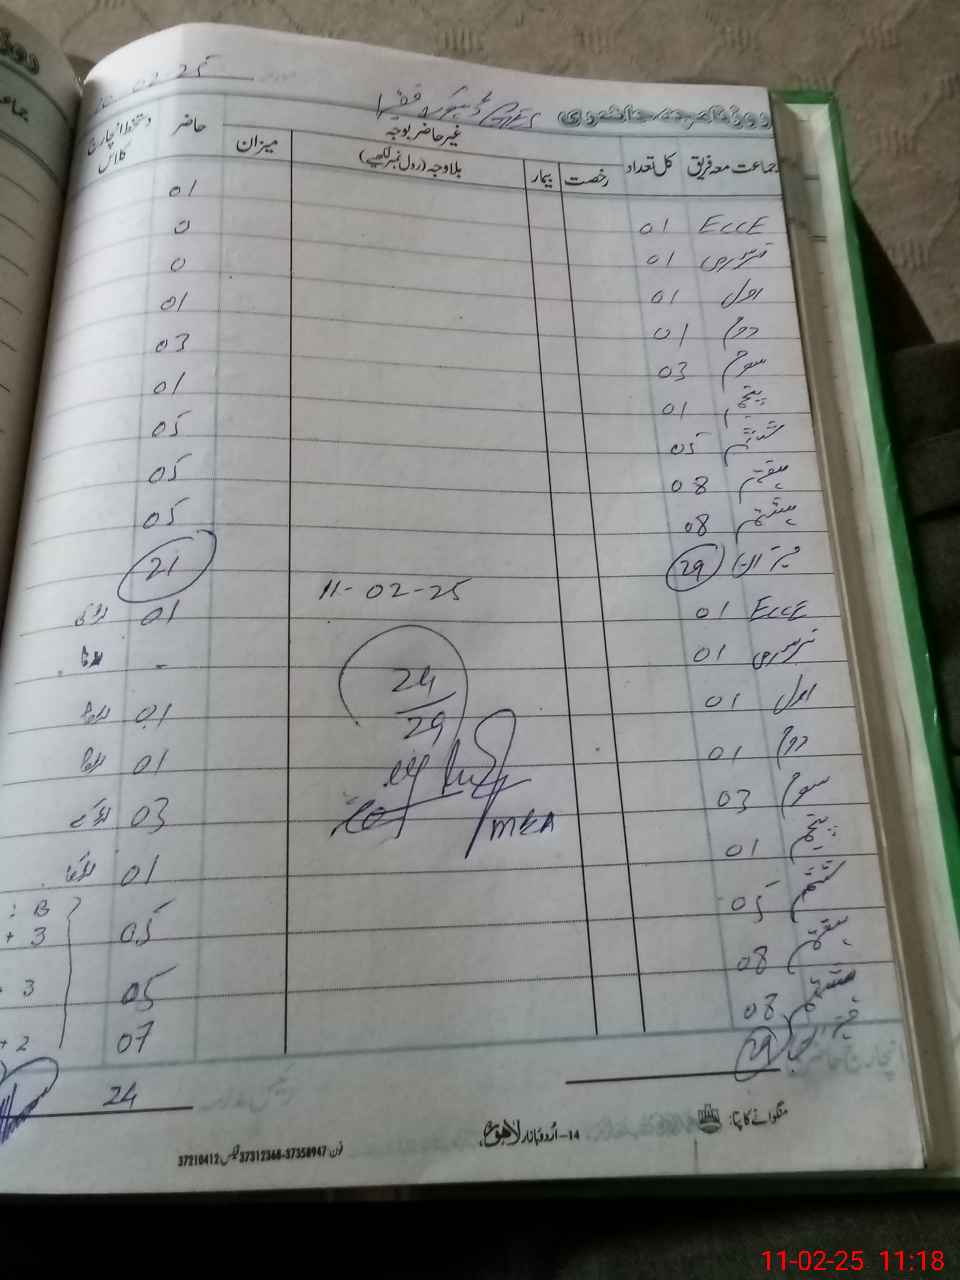 10-02-25
روزنامچہ حاضری
جماعت معہ فریق کل تعداد غیر حاضر بوجہ میزان حاضر دستخط انچارج کلاس
رخصت بیمار بلاوجہ (رول نمبر لکھیے)
ECCE 01 01
نرسری 01 0
اول 01 0
دوم 01 01
سوم 03 03
پنجم 01 01
ششم 05 05
ہفتم 08 05
ہشتم 08 05
میزان 29 21
11-02-25
ECCE 01 01
نرسری 01 -
اول 01 01
دوم 01 01
سوم 03 03
پنجم 01 01
ششم 05 05
ہفتم 08 05
ہشتم 08 07
میزان 29 24
24
29
MEA
: B
+ 3
+ 3
+ 2
منگوانے کا پتا:
14-اُردو بازار لاہور
فون: 37312368-37358947 فیکس: 37210412
11-02-25 11:18